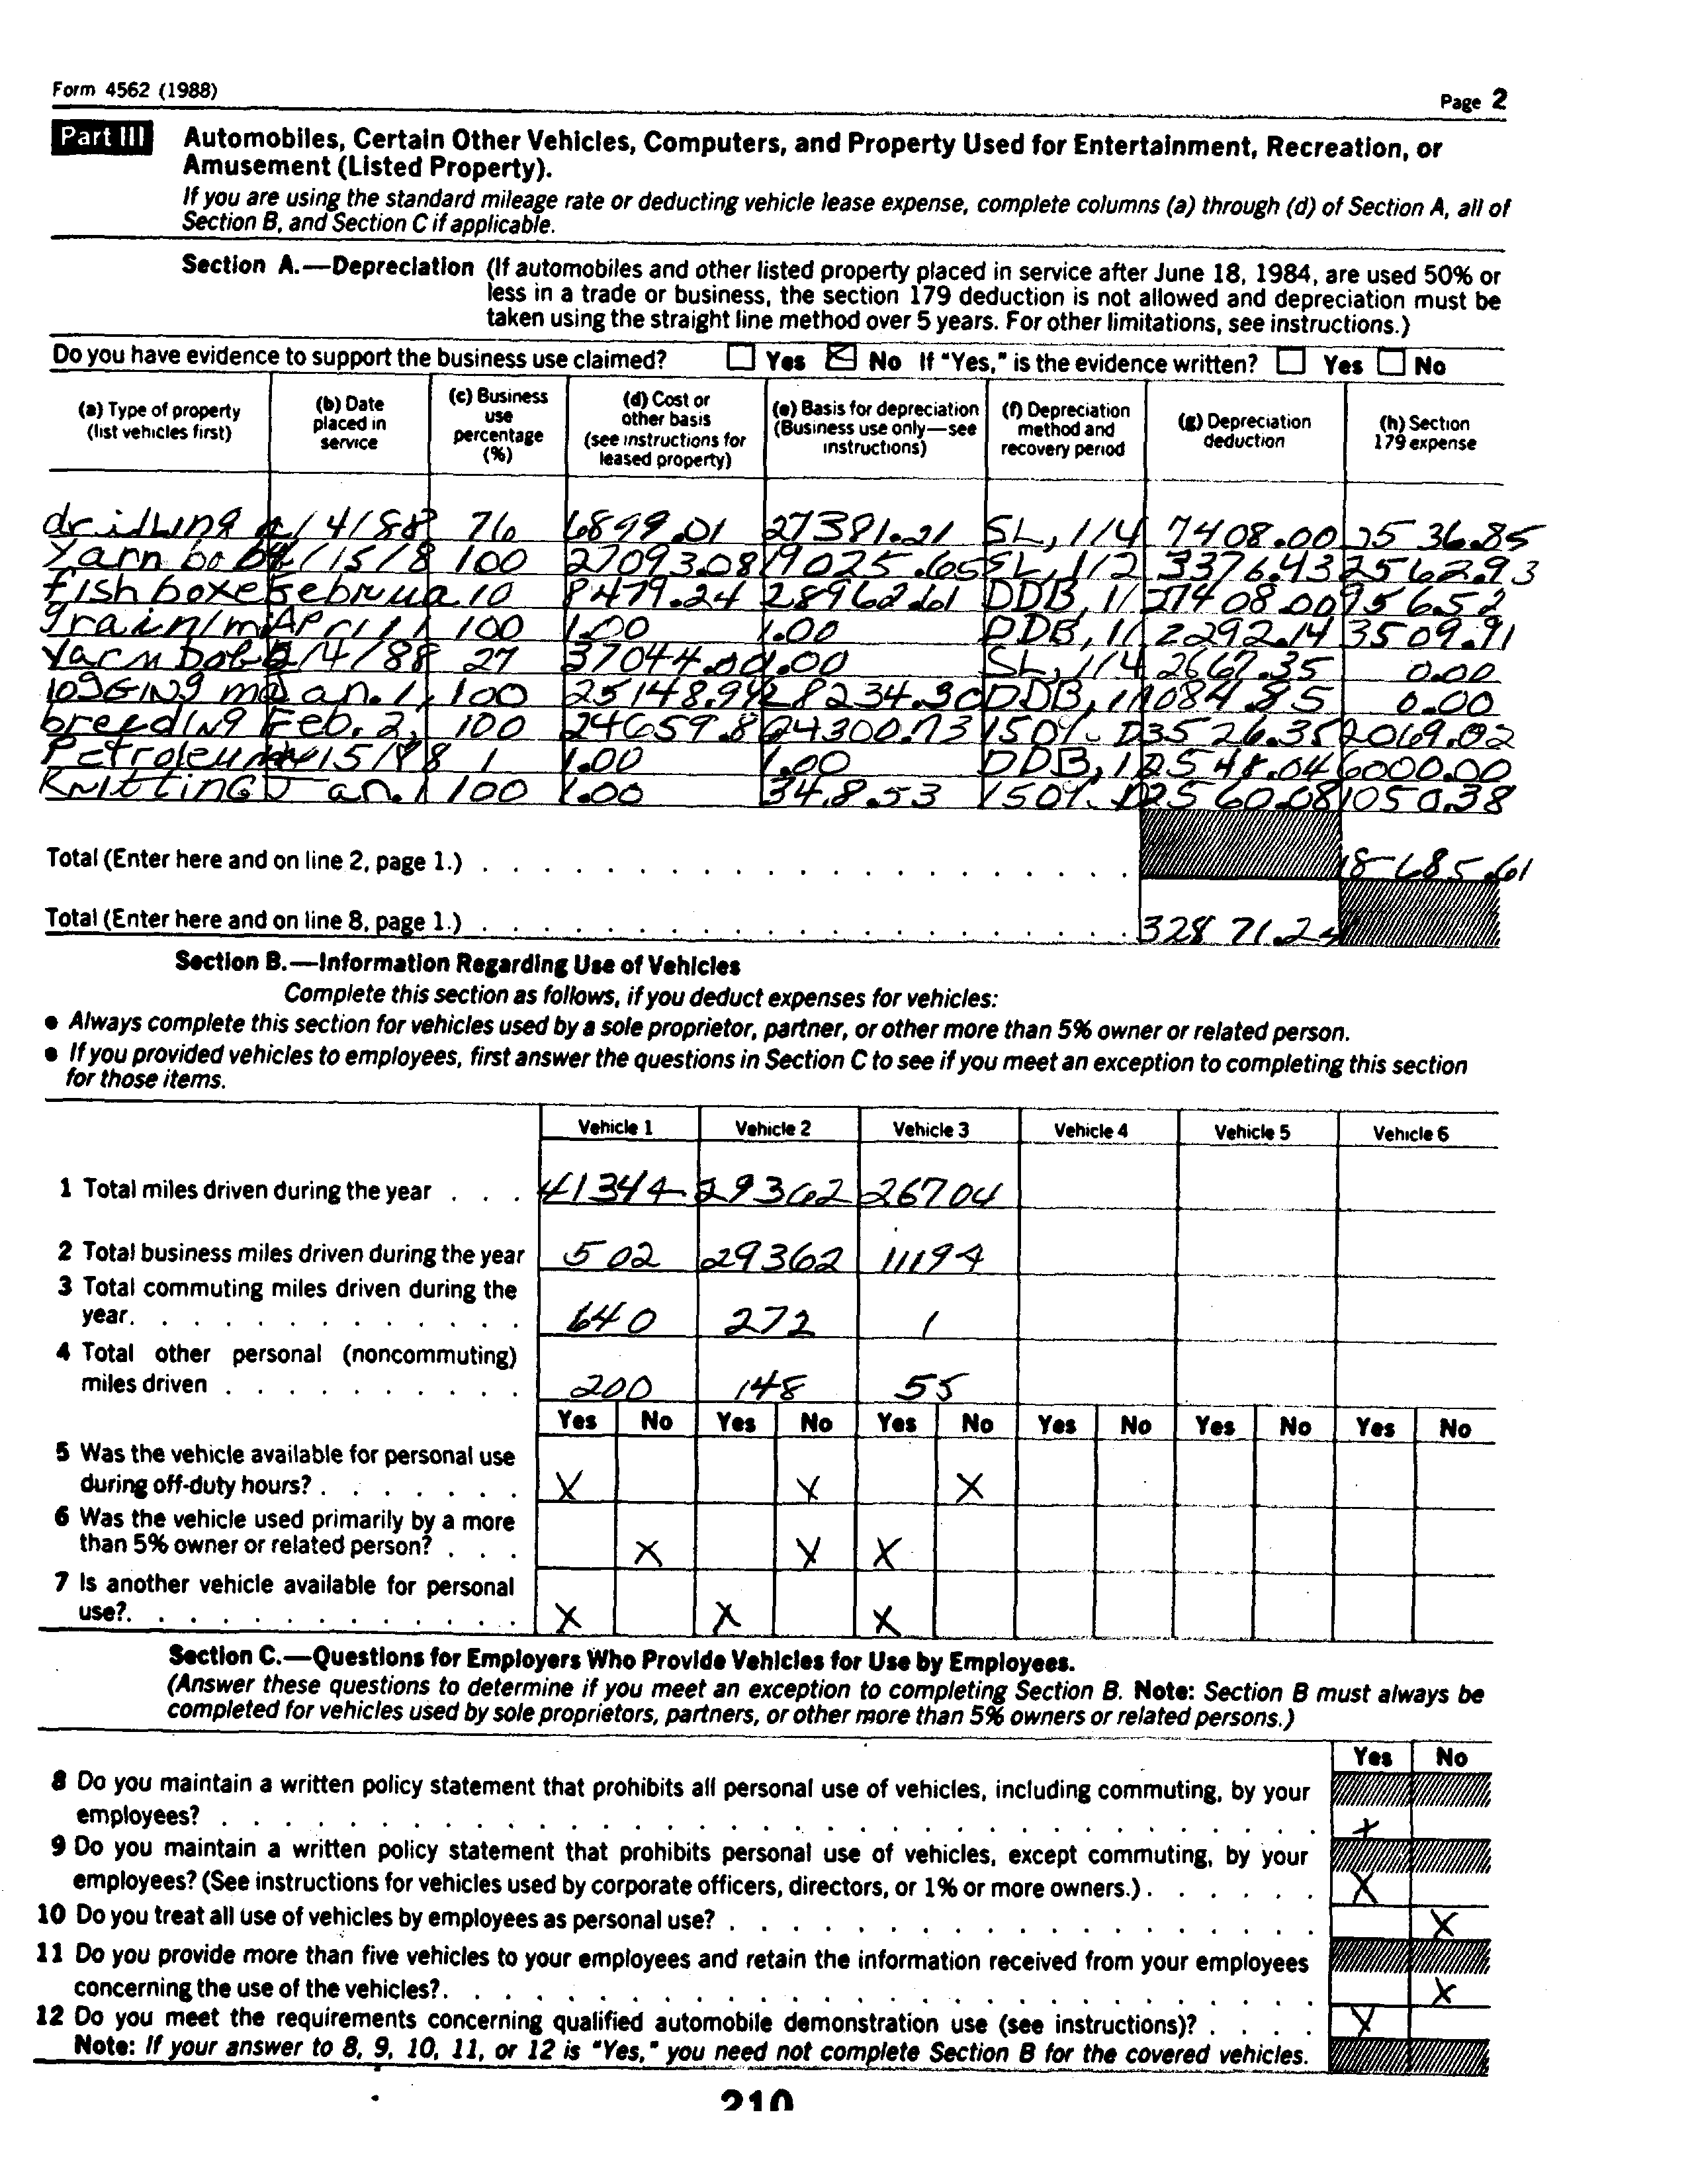 Form 4562 (1988)
Page 2
Part III Automobiles, Certain Other Vehicles, Computers, and Property Used for Entertainment, Recreation, or
Amusement (Listed Property).
If you are using the standard mileage rate or deducting vehicle lease expense, complete columns (a) through (d) of Section A, all of
Section B, and Section C if applicable.
Section A.—Depreciation (If automobiles and other listed property placed in service after June 18, 1984, are used 50% or
less in a trade or business, the section 179 deduction is not allowed and depreciation must be
taken using the straight line method over 5 years. For other limitations, see instructions.)
Do you have evidence to support the business use claimed? Yes No If "Yes," is the evidence written? Yes No
(a) Type of property (list vehicles first) (b) Date placed in service (c) Business use percentage (%) (d) Cost or other basis (see instructions for leased property) (e) Basis for depreciation (Business use only—see instructions) (f) Depreciation method and recovery period (g) Depreciation deduction (h) Section 179 expense
drilling 4/88 76 6899.01 27381.21 SL, 1/4 7408.00 2536.85
Yarn bob /15/8 100 27093.08 19025.65 SL, 1/2 3376.43 2562.93
fish boxe Februa 10 8479.24 28962.61 DDB, 1/ 27408.00 956.52
Grain/m April 1 100 1.00 1.00 DDB, 1/ 2292.14 3509.91
Yarn bob 2/4/88 27 37044.00 1.00 SL, 1/4 2667.35 0.00
logging ma Jan. 1, 100 25148.94 28234.30 DDB, 1/ 1084.85 0.00
breeding Feb. 2, 100 24659.8 24300.73 150% D 3526.35 2069.02
Petroleum 15/88 1 1.00 1.00 DDB, 1 2548.04 6000.00
Knitting Jan. 1 100 1.00 348.53 150% D 2560.08 1050.38
Total (Enter here and on line 2, page 1.) 18685.61
Total (Enter here and on line 8, page 1.) 32871.24
Section B.—Information Regarding Use of Vehicles
Complete this section as follows, if you deduct expenses for vehicles:
● Always complete this section for vehicles used by a sole proprietor, partner, or other more than 5% owner or related person.
● If you provided vehicles to employees, first answer the questions in Section C to see if you meet an exception to completing this section
for those items.
Vehicle 1 Vehicle 2 Vehicle 3 Vehicle 4 Vehicle 5 Vehicle 6
1 Total miles driven during the year . . . 41344 29362 26704
2 Total business miles driven during the year 502 29362 11194
3 Total commuting miles driven during the
year. . . . . . . . . . . . . 640 272 1
4 Total other personal (noncommuting)
miles driven . . . . . . . . . . 200 148 55
Yes No Yes No Yes No Yes No Yes No Yes No
5 Was the vehicle available for personal use
during off-duty hours? . . . . . . . X X X
6 Was the vehicle used primarily by a more
than 5% owner or related person? . . . X X X
7 Is another vehicle available for personal
use?. . . . . . . . . . . . . X X X
Section C.—Questions for Employers Who Provide Vehicles for Use by Employees.
(Answer these questions to determine if you meet an exception to completing Section B. Note: Section B must always be
completed for vehicles used by sole proprietors, partners, or other more than 5% owners or related persons.)
Yes No
8 Do you maintain a written policy statement that prohibits all personal use of vehicles, including commuting, by your
employees? X
9 Do you maintain a written policy statement that prohibits personal use of vehicles, except commuting, by your
employees? (See instructions for vehicles used by corporate officers, directors, or 1% or more owners.) . . . . . . X
10 Do you treat all use of vehicles by employees as personal use? X
11 Do you provide more than five vehicles to your employees and retain the information received from your employees
concerning the use of the vehicles?. X
12 Do you meet the requirements concerning qualified automobile demonstration use (see instructions)? . . . . X
Note: If your answer to 8, 9, 10, 11, or 12 is "Yes," you need not complete Section B for the covered vehicles.
210